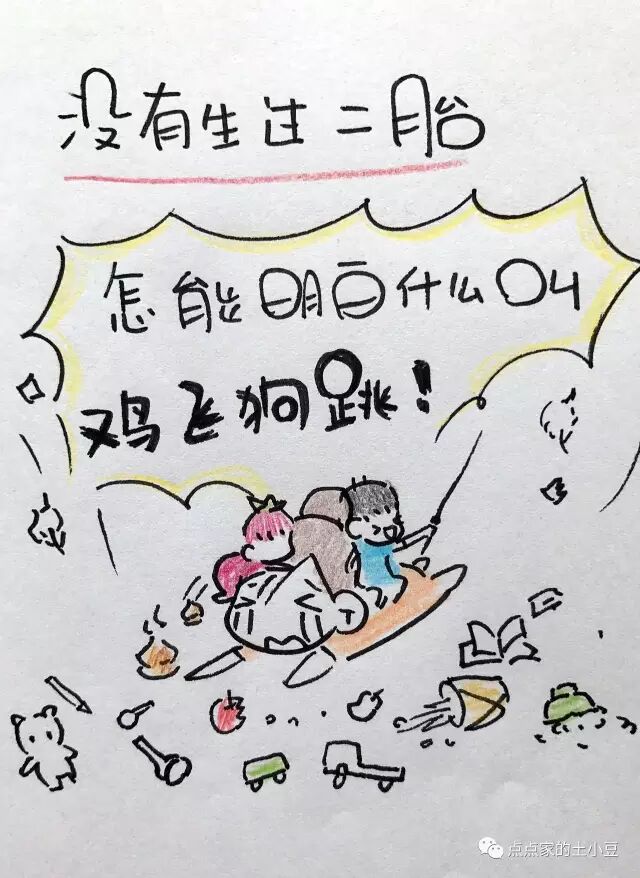 没有生过二胎
怎能明白什么叫
鸡飞狗跳！
点点家的土小豆